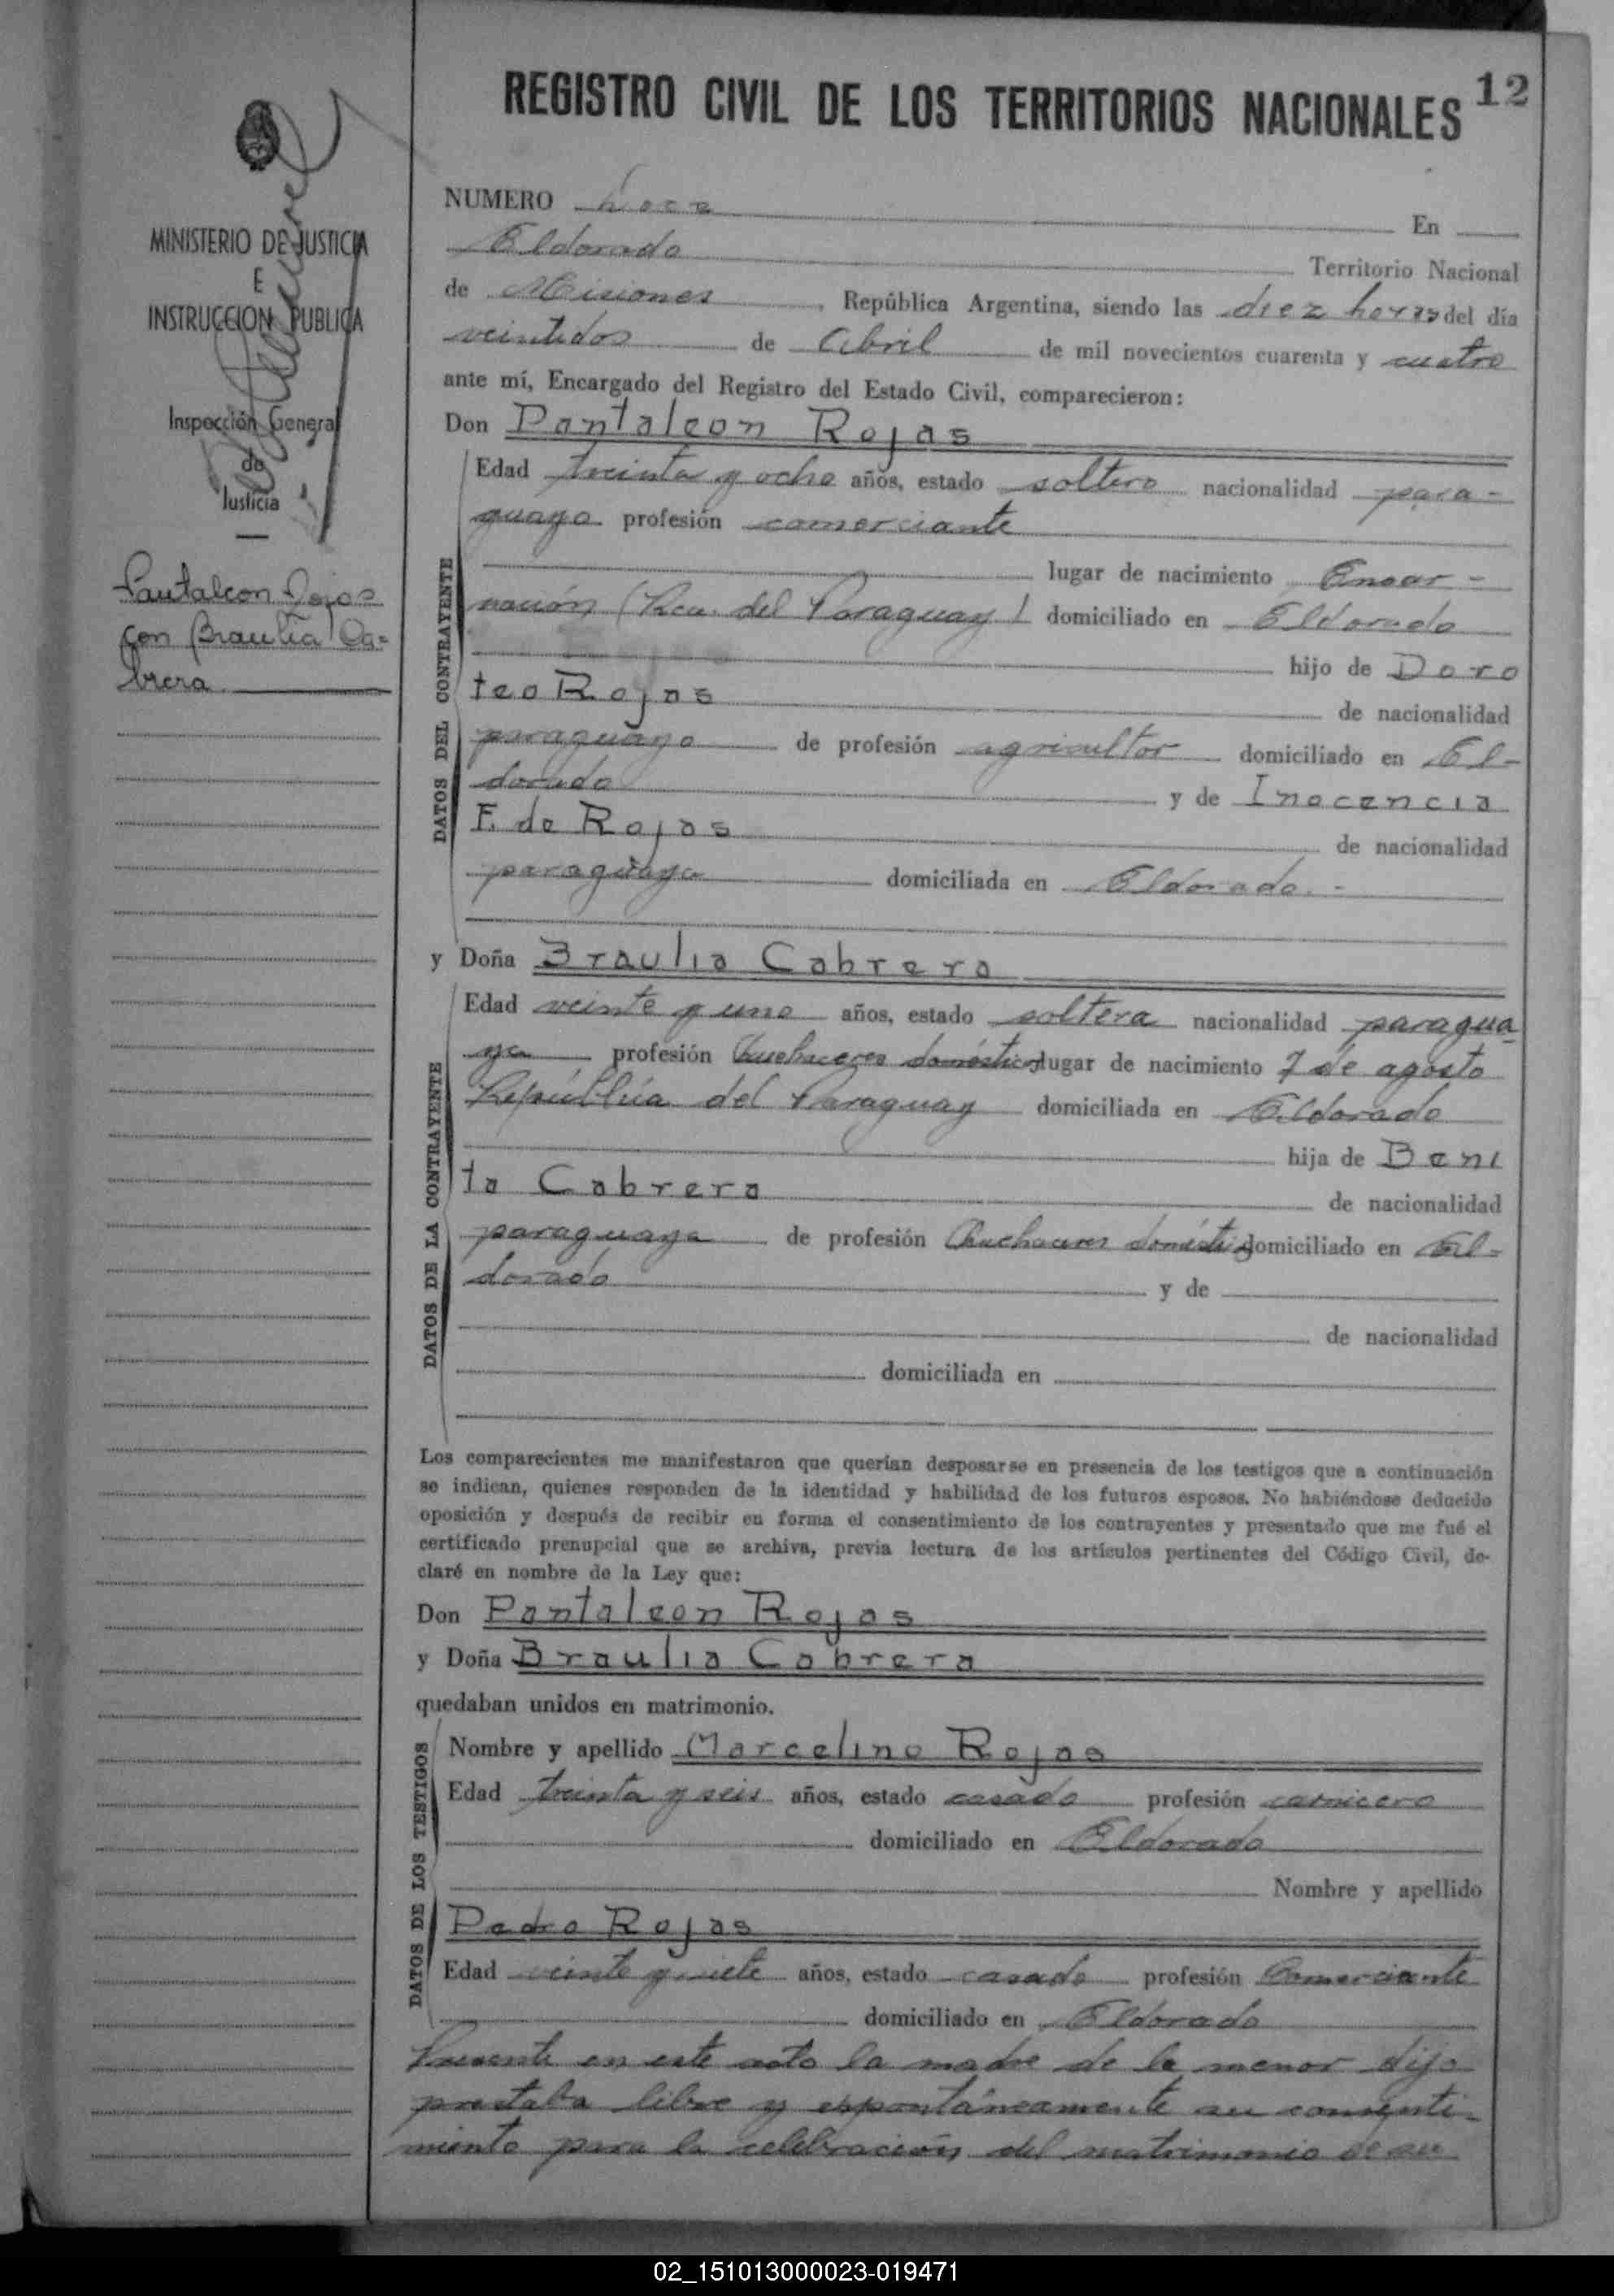 REGISTRO CIVIL DE LOS TERRITORIOS NACIONALES 12
MINISTERIO DE JUSTICIA
E
INSTRUCCION PUBLICA
Inspección General
de
Justicia
Pantaleon Rojas
con Braulia Ca-
brera
NUMERO Doce En
Eldorado Territorio Nacional
de Misiones, República Argentina, siendo las diez horas del día
veintidos de Abril de mil novecientos cuarenta y cuatro
ante mí, Encargado del Registro del Estado Civil, comparecieron:
Don Pantaleon Rojas
DATOS DEL CONTRAYENTE
Edad treinta y ocho años, estado soltero nacionalidad para-
guayo profesión comerciante
lugar de nacimiento Encar-
nación (Rca. del Paraguay) domiciliado en Eldorado
hijo de Doro
teo Rojas de nacionalidad
paraguayo de profesión agricultor domiciliado en El-
dorado y de Inocencia
F. de Rojas de nacionalidad
paraguaya domiciliada en Eldorado.-
y Doña Braulia Cabrera
DATOS DE LA CONTRAYENTE
Edad veinte y uno años, estado soltera nacionalidad paragua-
ya profesión Quehaceres domésticos lugar de nacimiento 7 de agosto
República del Paraguay domiciliada en Eldorado
hija de Beni
ta Cabrera de nacionalidad
paraguaya de profesión Quehaceres domésticos domiciliado en El-
dorado y de
de nacionalidad
domiciliada en
Los comparecientes me manifestaron que querían desposarse en presencia de los testigos que a continuación
se indican, quienes responden de la identidad y habilidad de los futuros esposos. No habiéndose deducido
oposición y después de recibir en forma el consentimiento de los contrayentes y presentado que me fué el
certificado prenupcial que se archiva, previa lectura de los artículos pertinentes del Código Civil, de-
claré en nombre de la Ley que:
Don Pantaleon Rojas
y Doña Braulia Cabrera
quedaban unidos en matrimonio.
DATOS DE LOS TESTIGOS
Nombre y apellido Marcelino Rojas
Edad treinta y seis años, estado casado profesión carnicero
domiciliado en Eldorado
Nombre y apellido
Pedro Rojas
Edad veinte y siete años, estado casado profesión Comerciante
domiciliado en Eldorado
Presente en este acto la madre de la menor dijo
prestaba libre y espontáneamente su consenti-
miento para la celebración del matrimonio de su
02_151013000023-019471